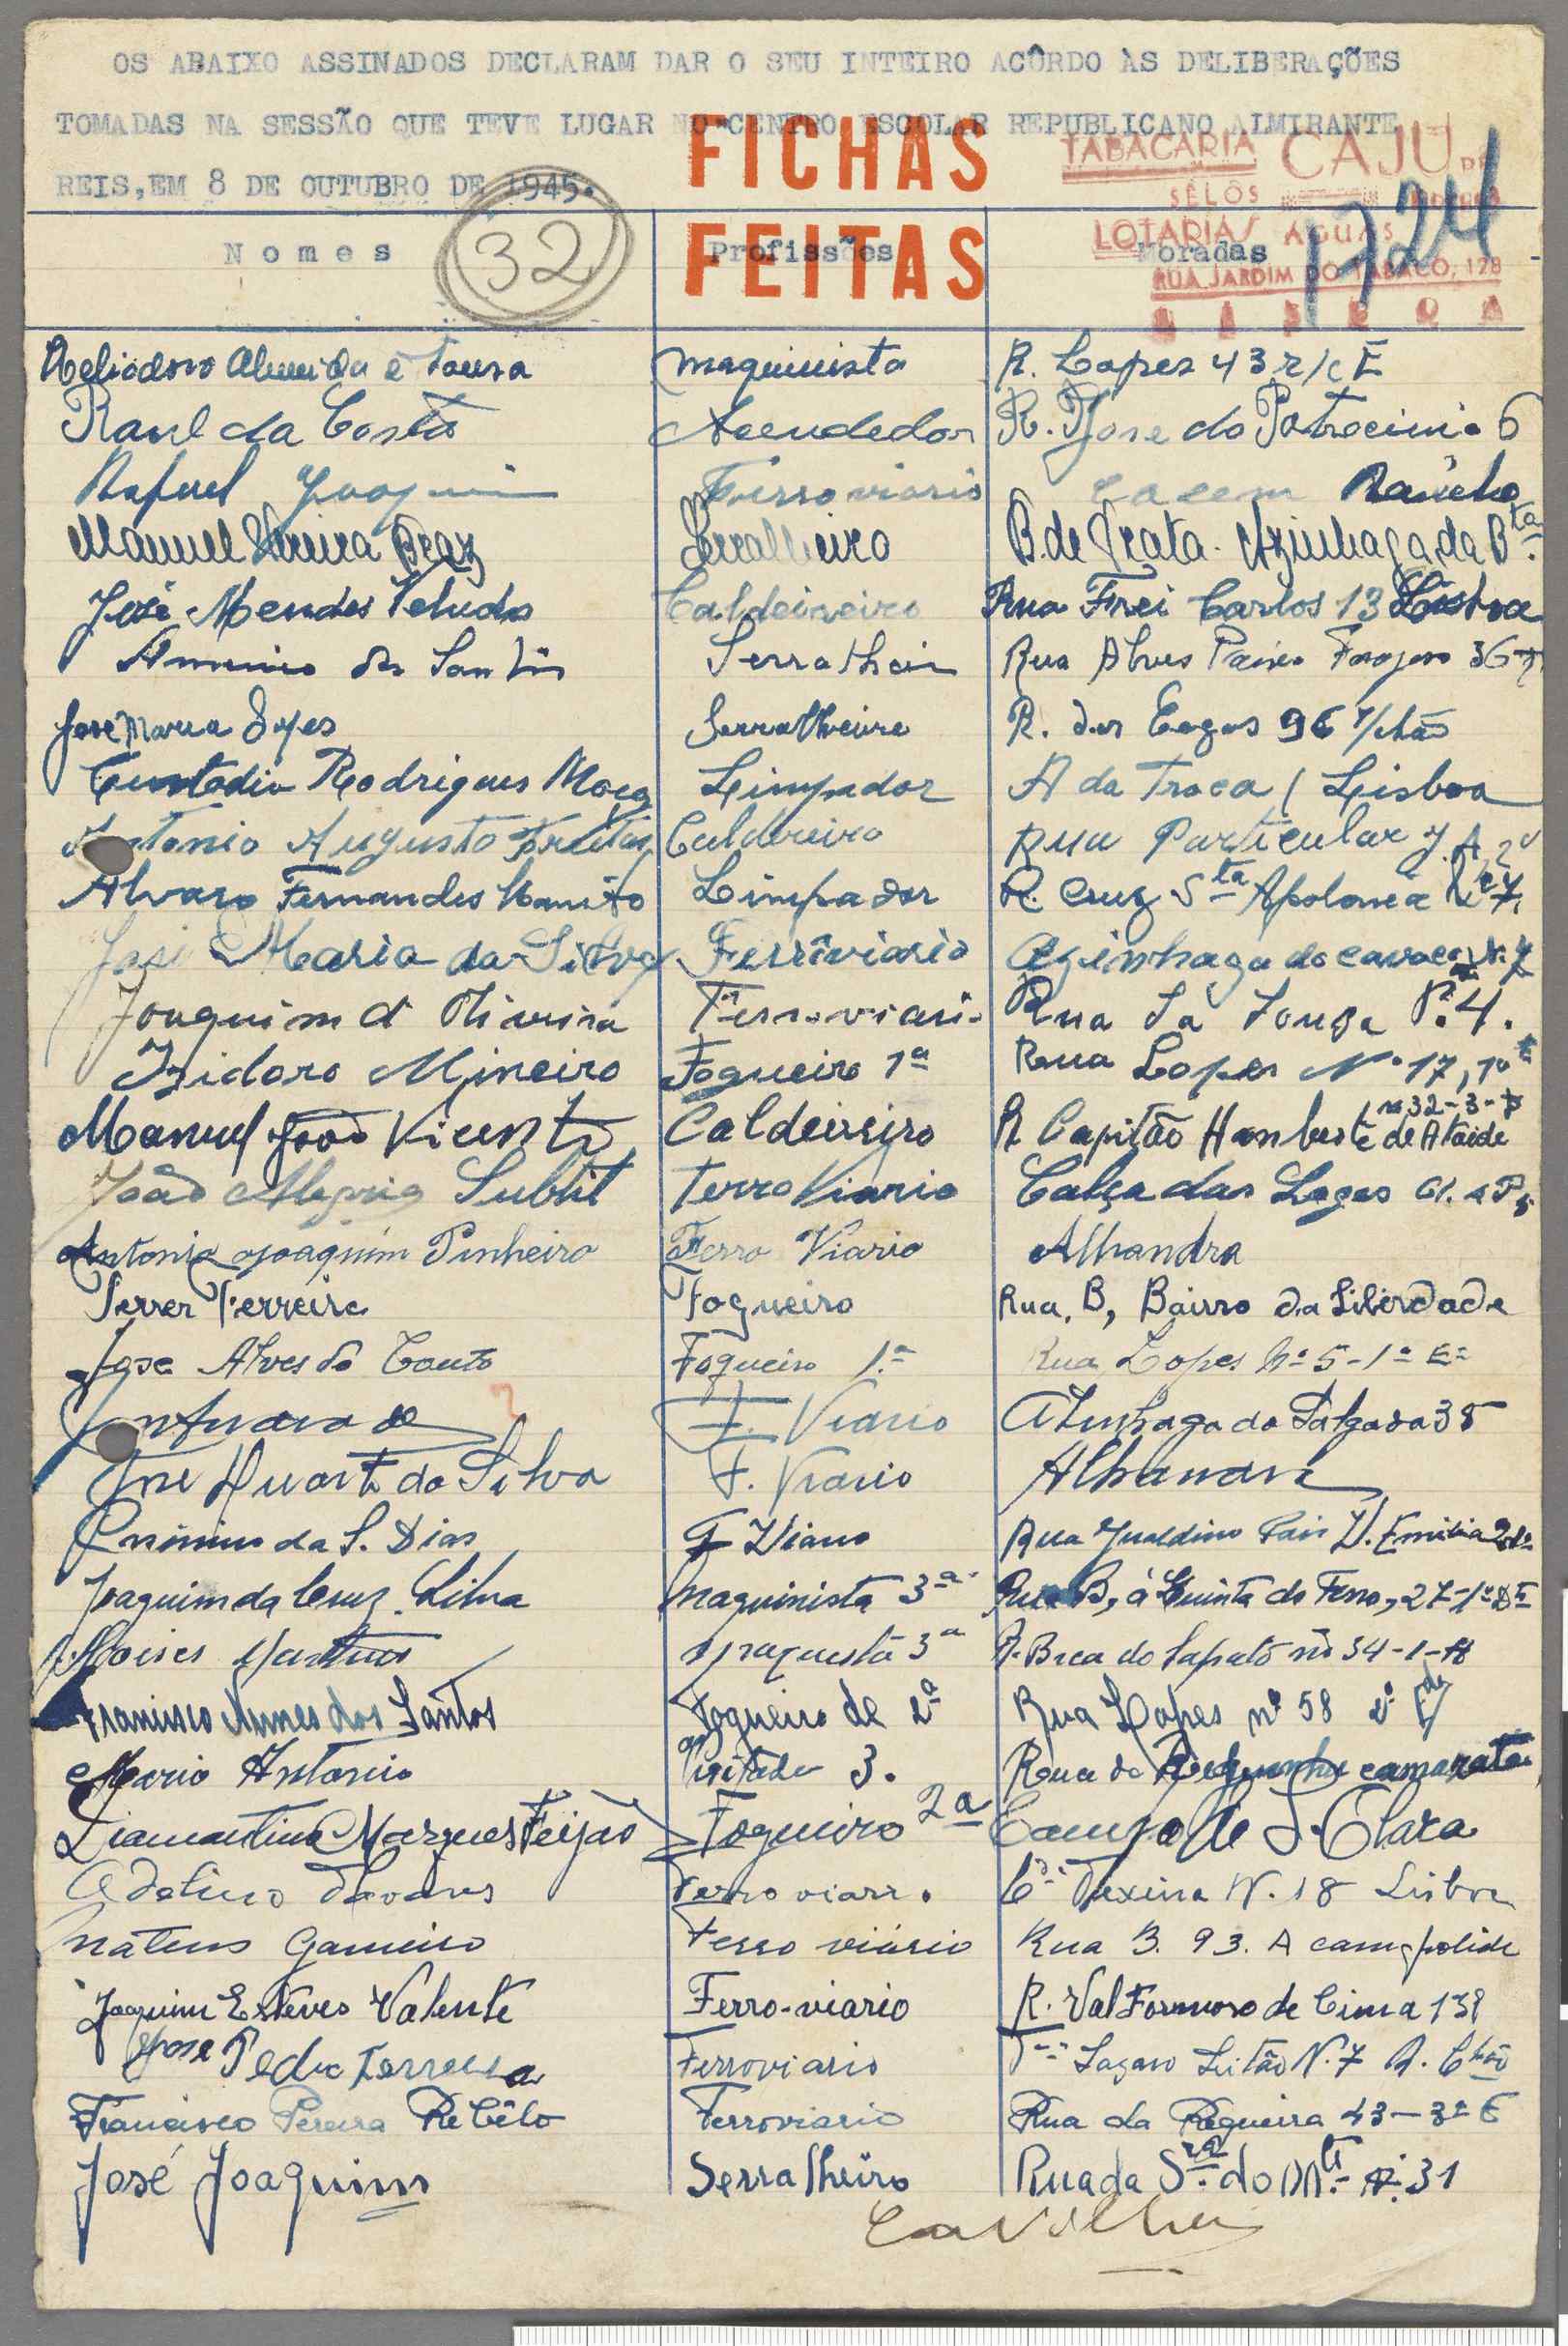 OS ABAIXO ASSINADOS DECLARAM DAR O SEU INTEIRO ACÔRDO ÀS DELIBERAÇÕES
TOMADAS NA SESSÃO QUE TEVE LUGAR NO CENTRO ESCOLAR REPUBLICANO ALMIRANTE
REIS, EM 8 DE OUTUBRO DE 1945.
FICHAS
FEITAS
TABACARIA CAJU DE
SÊLOS
LOTARIAS AGUAS
RUA JARDIM DO TABACO, 128
LISBOA
1724
32
Nomes Profissões Moradas
Heliodoro Almeida e Sousa maquinista R. Lopes 43 r/c E
Raul da Costa Acendedor R. José do Patrocinio 6
Rafael Joaquim Ferroviario Cacem Rancho
Manuel Pereira Braz Serralheiro B. de Prata. Azinhaga da B.ta
José Mendes Veludo Caldeireiro Rua Frei Carlos 13 Lisboa
dos Santos Serralheiro Rua Alves 36
José Maria Lopes Serralheiro R. dos 96 r/chão
Custodio Rodrigues Limpador A da Traca / Lisboa
Antonio Augusto Freitas Caldereiro Rua Particular J. A, 2º
Alvaro Fernandes Limpador R. Cruz S.ta Apolonea
José Maria da Silva Ferrôviario Azinhaga do
Joaquim d Oliveira Ferroviario Rua Sà P. 4.
Izidoro Mineiro Fogueiro 1ª Rua Lopes Nº 17, 1º
Manuel João Vicente Caldeireiro R Capitão Humberto de Ataide nº 32-3-
João Subtil Ferro Viario Calçada das Lages
Antonio Joaquim Pinheiro Ferro Viario Alhandra
Ferrer Ferreira Fogueiro Rua, B, Bairro da Liberdade
Jose Alves do Couto Fogueiro 1.ª Rua Lopes Nº 5-1º Eº
F. Viario do Salgado 38
José Duarte da Silva F. Viario Alhandra
da S. Dias F Viario Rua Gualdino Pais V. Emilia
Joaquim da Cruz Silva maquinista 3ª Rua B, à Quinta do Ferro, 27-1º Dtº
Moises Martins 3ª R. Bica do Sapato nº 34-1-
Francisco Nunes dos Santos Fogueiro de 2ª Rua Lopes nº 58 2º
Mario Antonio 3. Rua da camarate
Diamantino Marques Feijão Fogueiro 2ª Campo de S. Clara
Adelino Tavares Ferroviari. N. 18 Lisboa
Mateus Gameiro Ferro viário Rua B. 93. A campolide
Joaquim Esteves Valente Ferro-viario R. Val Formoso de Cima
José Pedro Ferreira Ferroviario Lazaro Leitão N. 7 R. Chão
Francisco Pereira Rebêlo Ferroviario Rua da Regueira 43-3º E
José Joaquim Serralheiro Rua da Sra. do Mte. nº 31